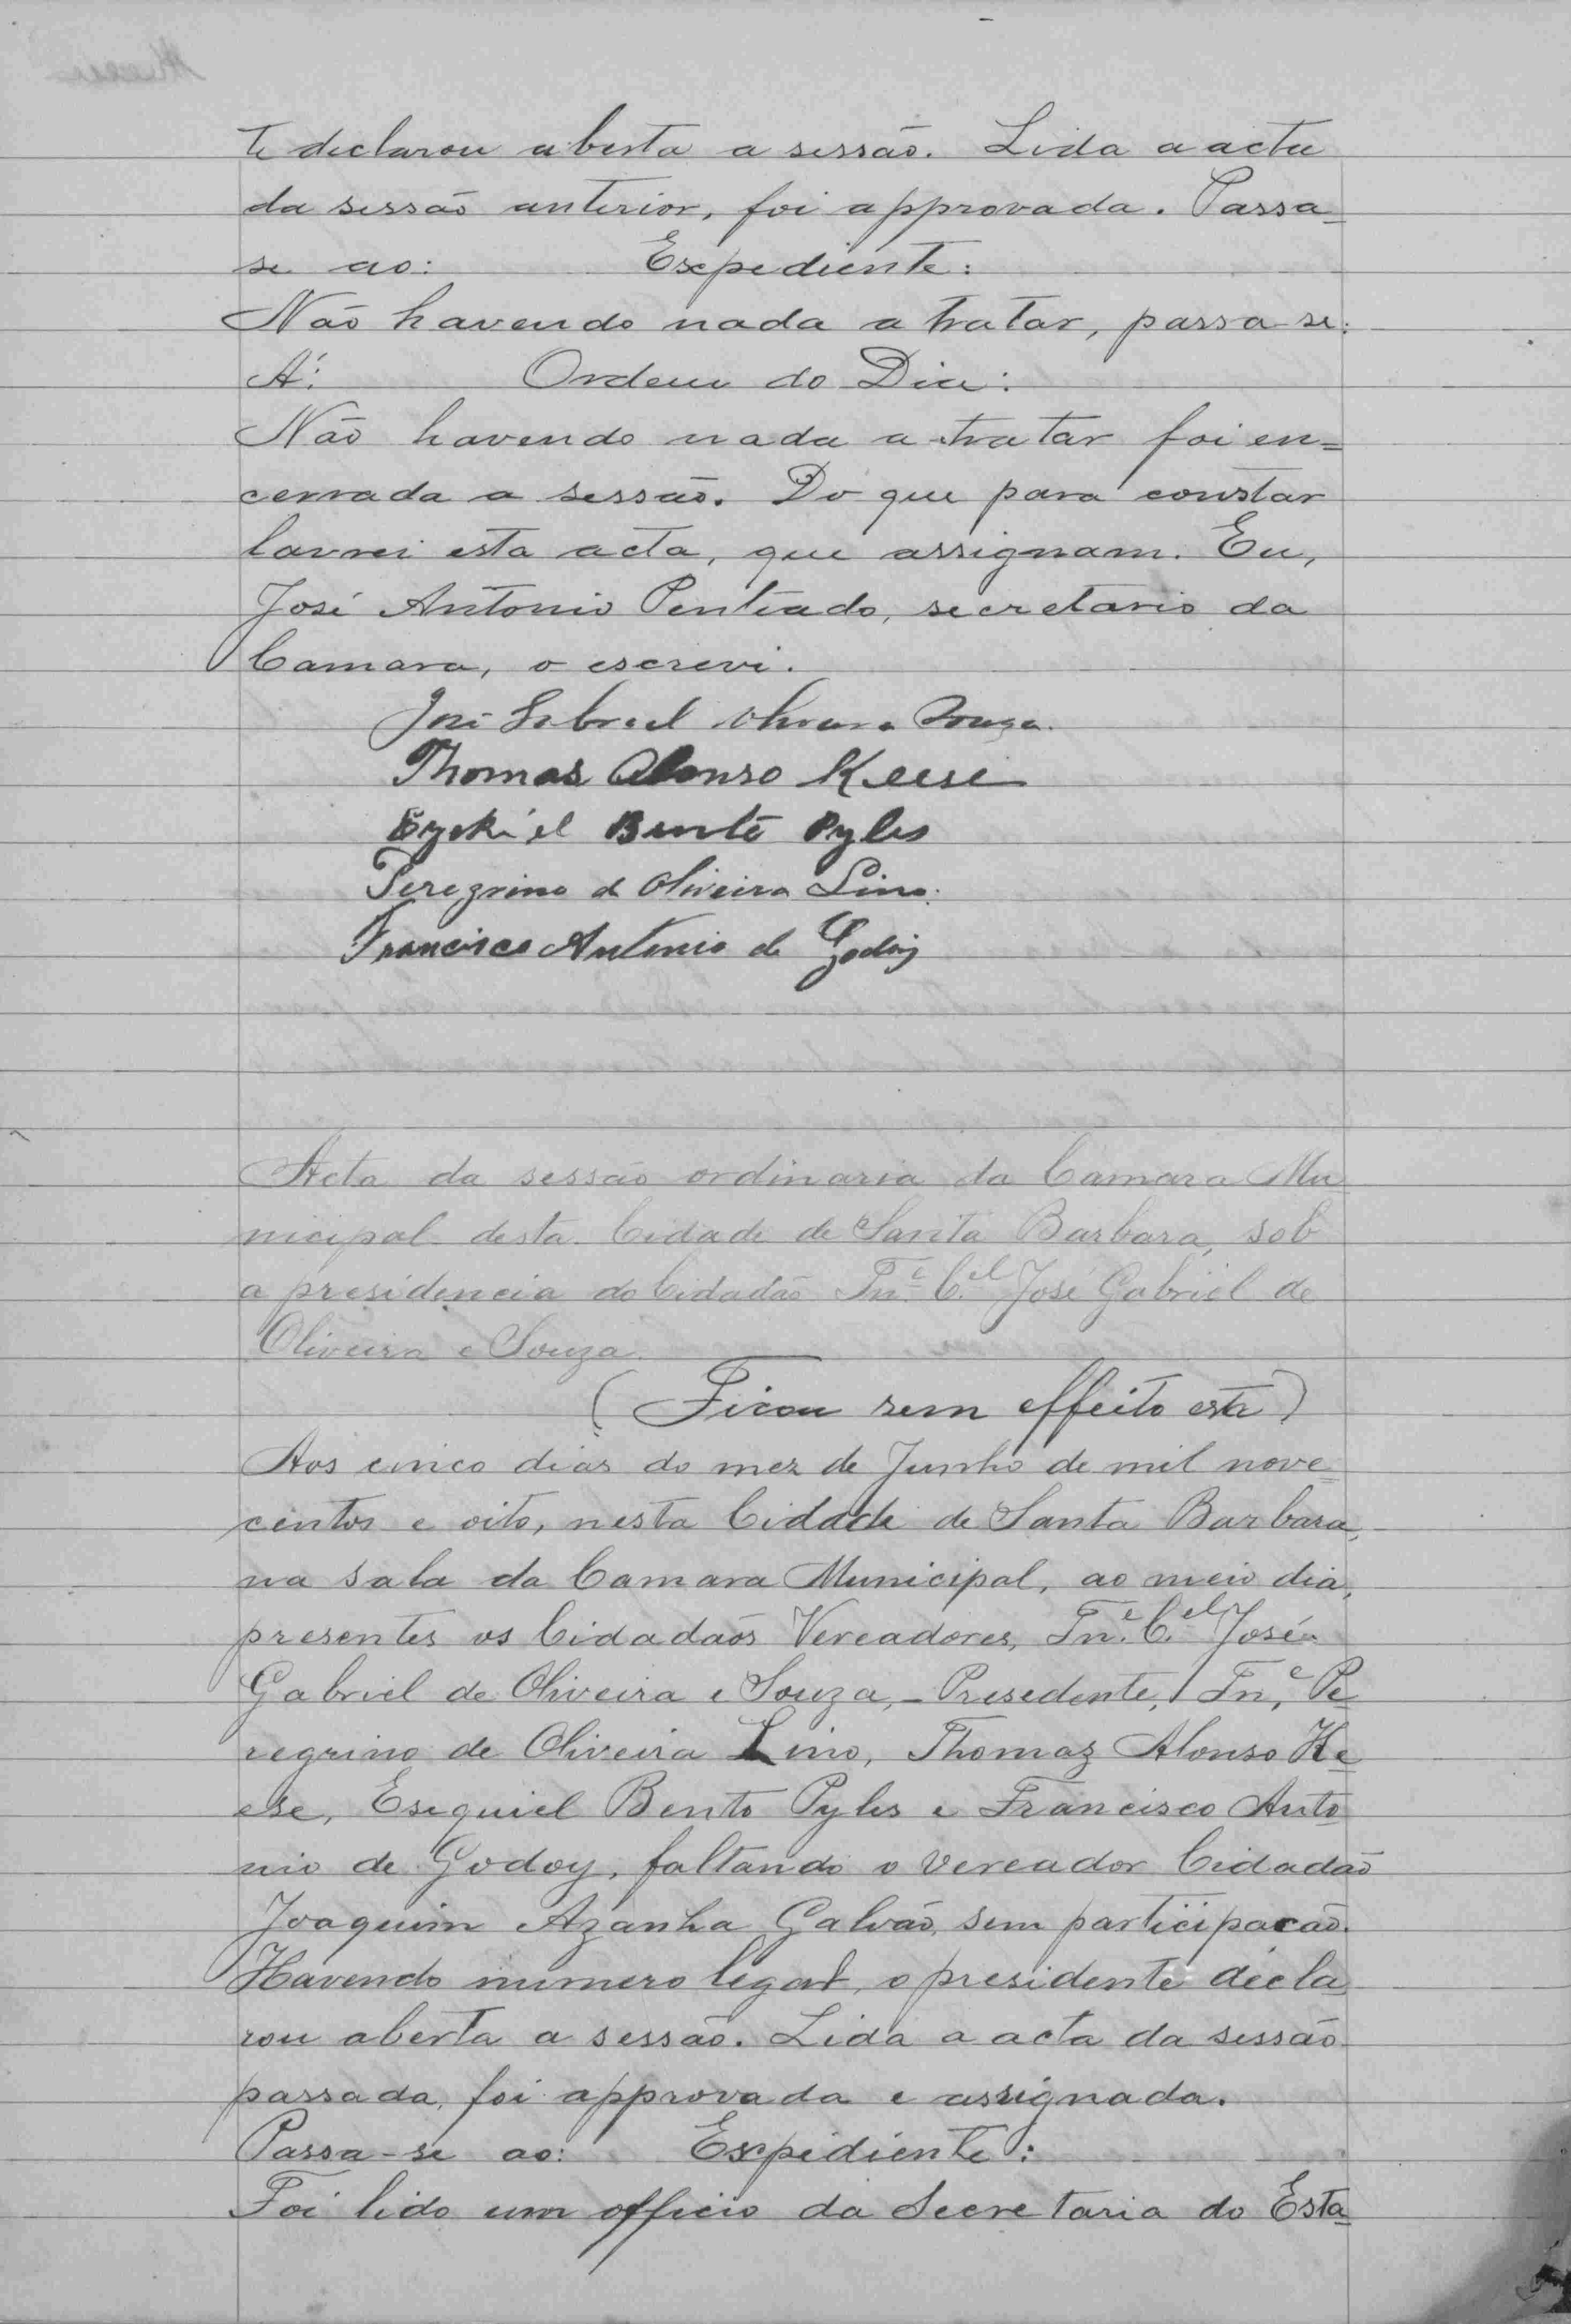 te declarou aberta a sessão. Lida a acta
da sessão anterior, foi approvada. Passa-
se ao: Expediente:
Não havendo nada a tratar, passa-se:
Á: Ordem do Dia:
Não havendo nada a tratar foi en=
cerrada a sessão. Do que para constar
lavrei esta acta, que assignam. Eu,
José Antonio Penteado, secretario da
Camara, o escrevi.
José Gabriel Oliveira Souza.
Thomas Alonso Keese
Ezekiel Bento Pyles
Peregrino d Oliveira Lino.
Francisco Antonio de Godoy
Acta da sessão ordinaria da Camara Mu
nicipal desta Cidade de Santa Barbara, sob
a presidencia do Cidadão Tn.e C.el José Gabriel de
Oliveira e Souza.
(Ficou sem effeito esta)
Aos cinco dias do mez de Junho de mil nove=
centos e oito, nesta Cidade de Santa Barbara,
na sala da Camara Municipal, ao meio dia,
presentes os Cidadãos Vereadores, Tn.e C.el José
Gabriel de Oliveira e Souza, - Presedente, Tn.e Pe-
regrino de Oliveira Lino, Thomaz Alonso Ke-
ese, Esequiel Bento Pyles e Francisco Anto
nio de Godoy, faltando o Vereador Cidadão
Joaquim Azanha Galvão, sem participacão.
Havendo numero legal, o presidente decla
rou aberta a sessão. Lida a acta da sessão
passada, foi approvada e assignada.
Passa-se ao: Expidiente:
Foi lido um officio da Secretaria do Esta-